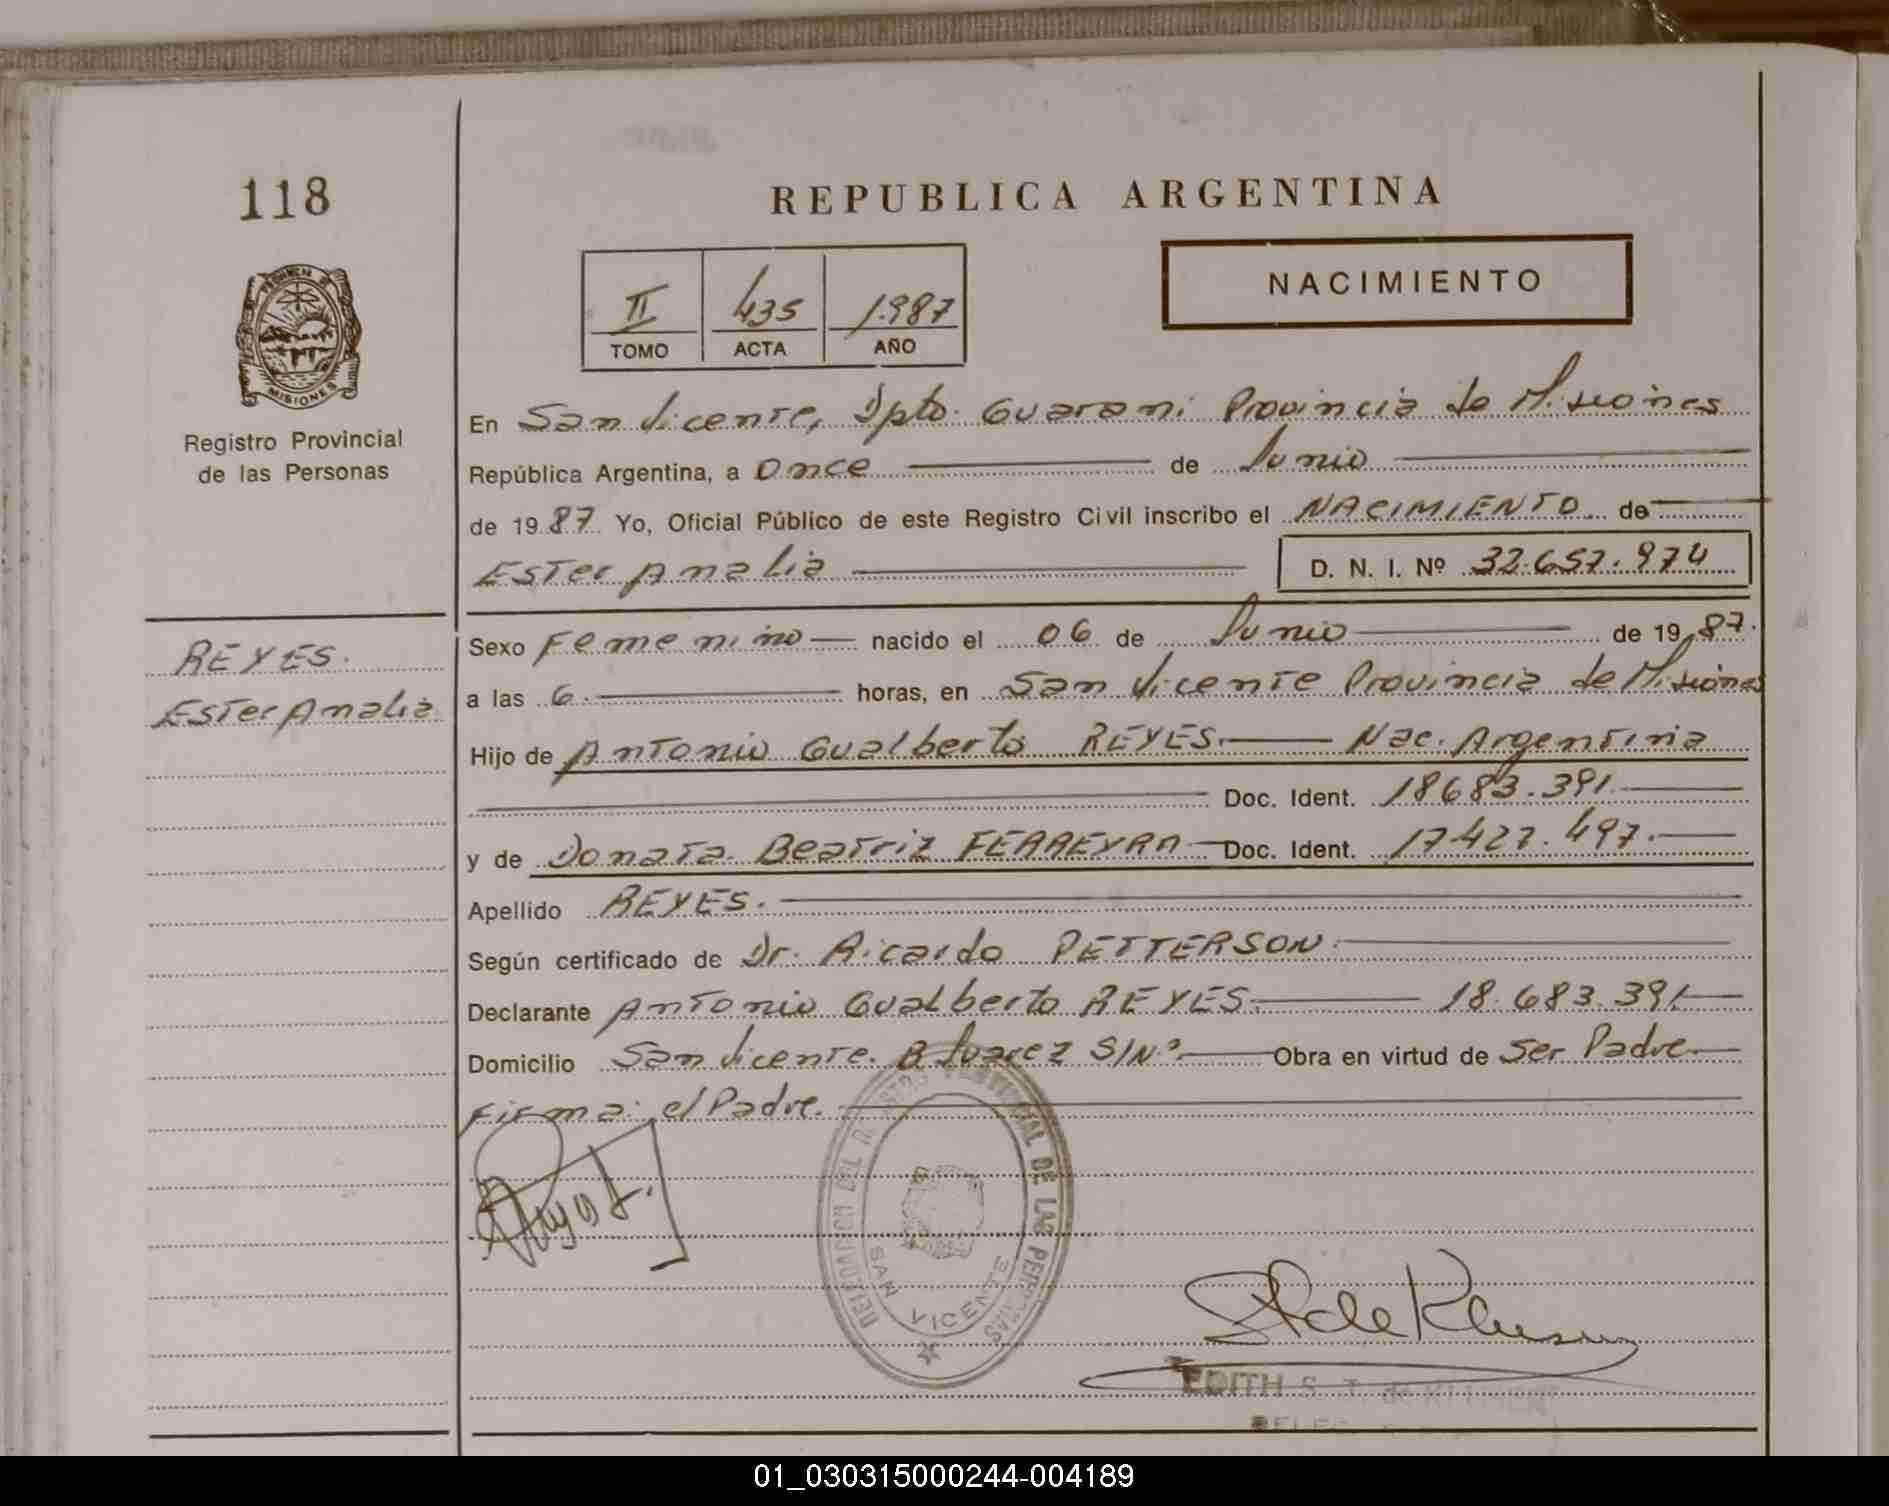 118
REPUBLICA ARGENTINA
NACIMIENTO
II 435 1.987
TOMO ACTA AÑO
PROVINCIA DE
MISIONES
Registro Provincial
de las Personas
En San Vicente, Dpto. Guarani Provincia de Misiones
República Argentina, a once de Junio
de 1987 Yo, Oficial Público de este Registro Civil inscribo el NACIMIENTO de
Ester Analia D. N. I. Nº 32.657.974
REYES.
Ester Analia
Sexo Femenino nacido el 06 de Junio de 1987.
a las 6. horas, en San Vicente Provincia de Misiones
Hijo de Antonio Gualberto REYES. Nac. Argentina
Doc. Ident. 18683.391.
y de Donata Beatriz FERREYRA Doc. Ident. 17427.497.
Apellido REYES.
Según certificado de Dr. Ricardo PETTERSON.
Declarante Antonio Gualberto REYES. 18.683.391
Domicilio San Vicente. B Suarez S/Nº Obra en virtud de Ser Padre
Firma: el Padre.
DELEGACION DEL REGISTRO PROVINCIAL DE LAS PERSONAS
SAN VICENTE
EDITH S. J. de
01_030315000244-004189